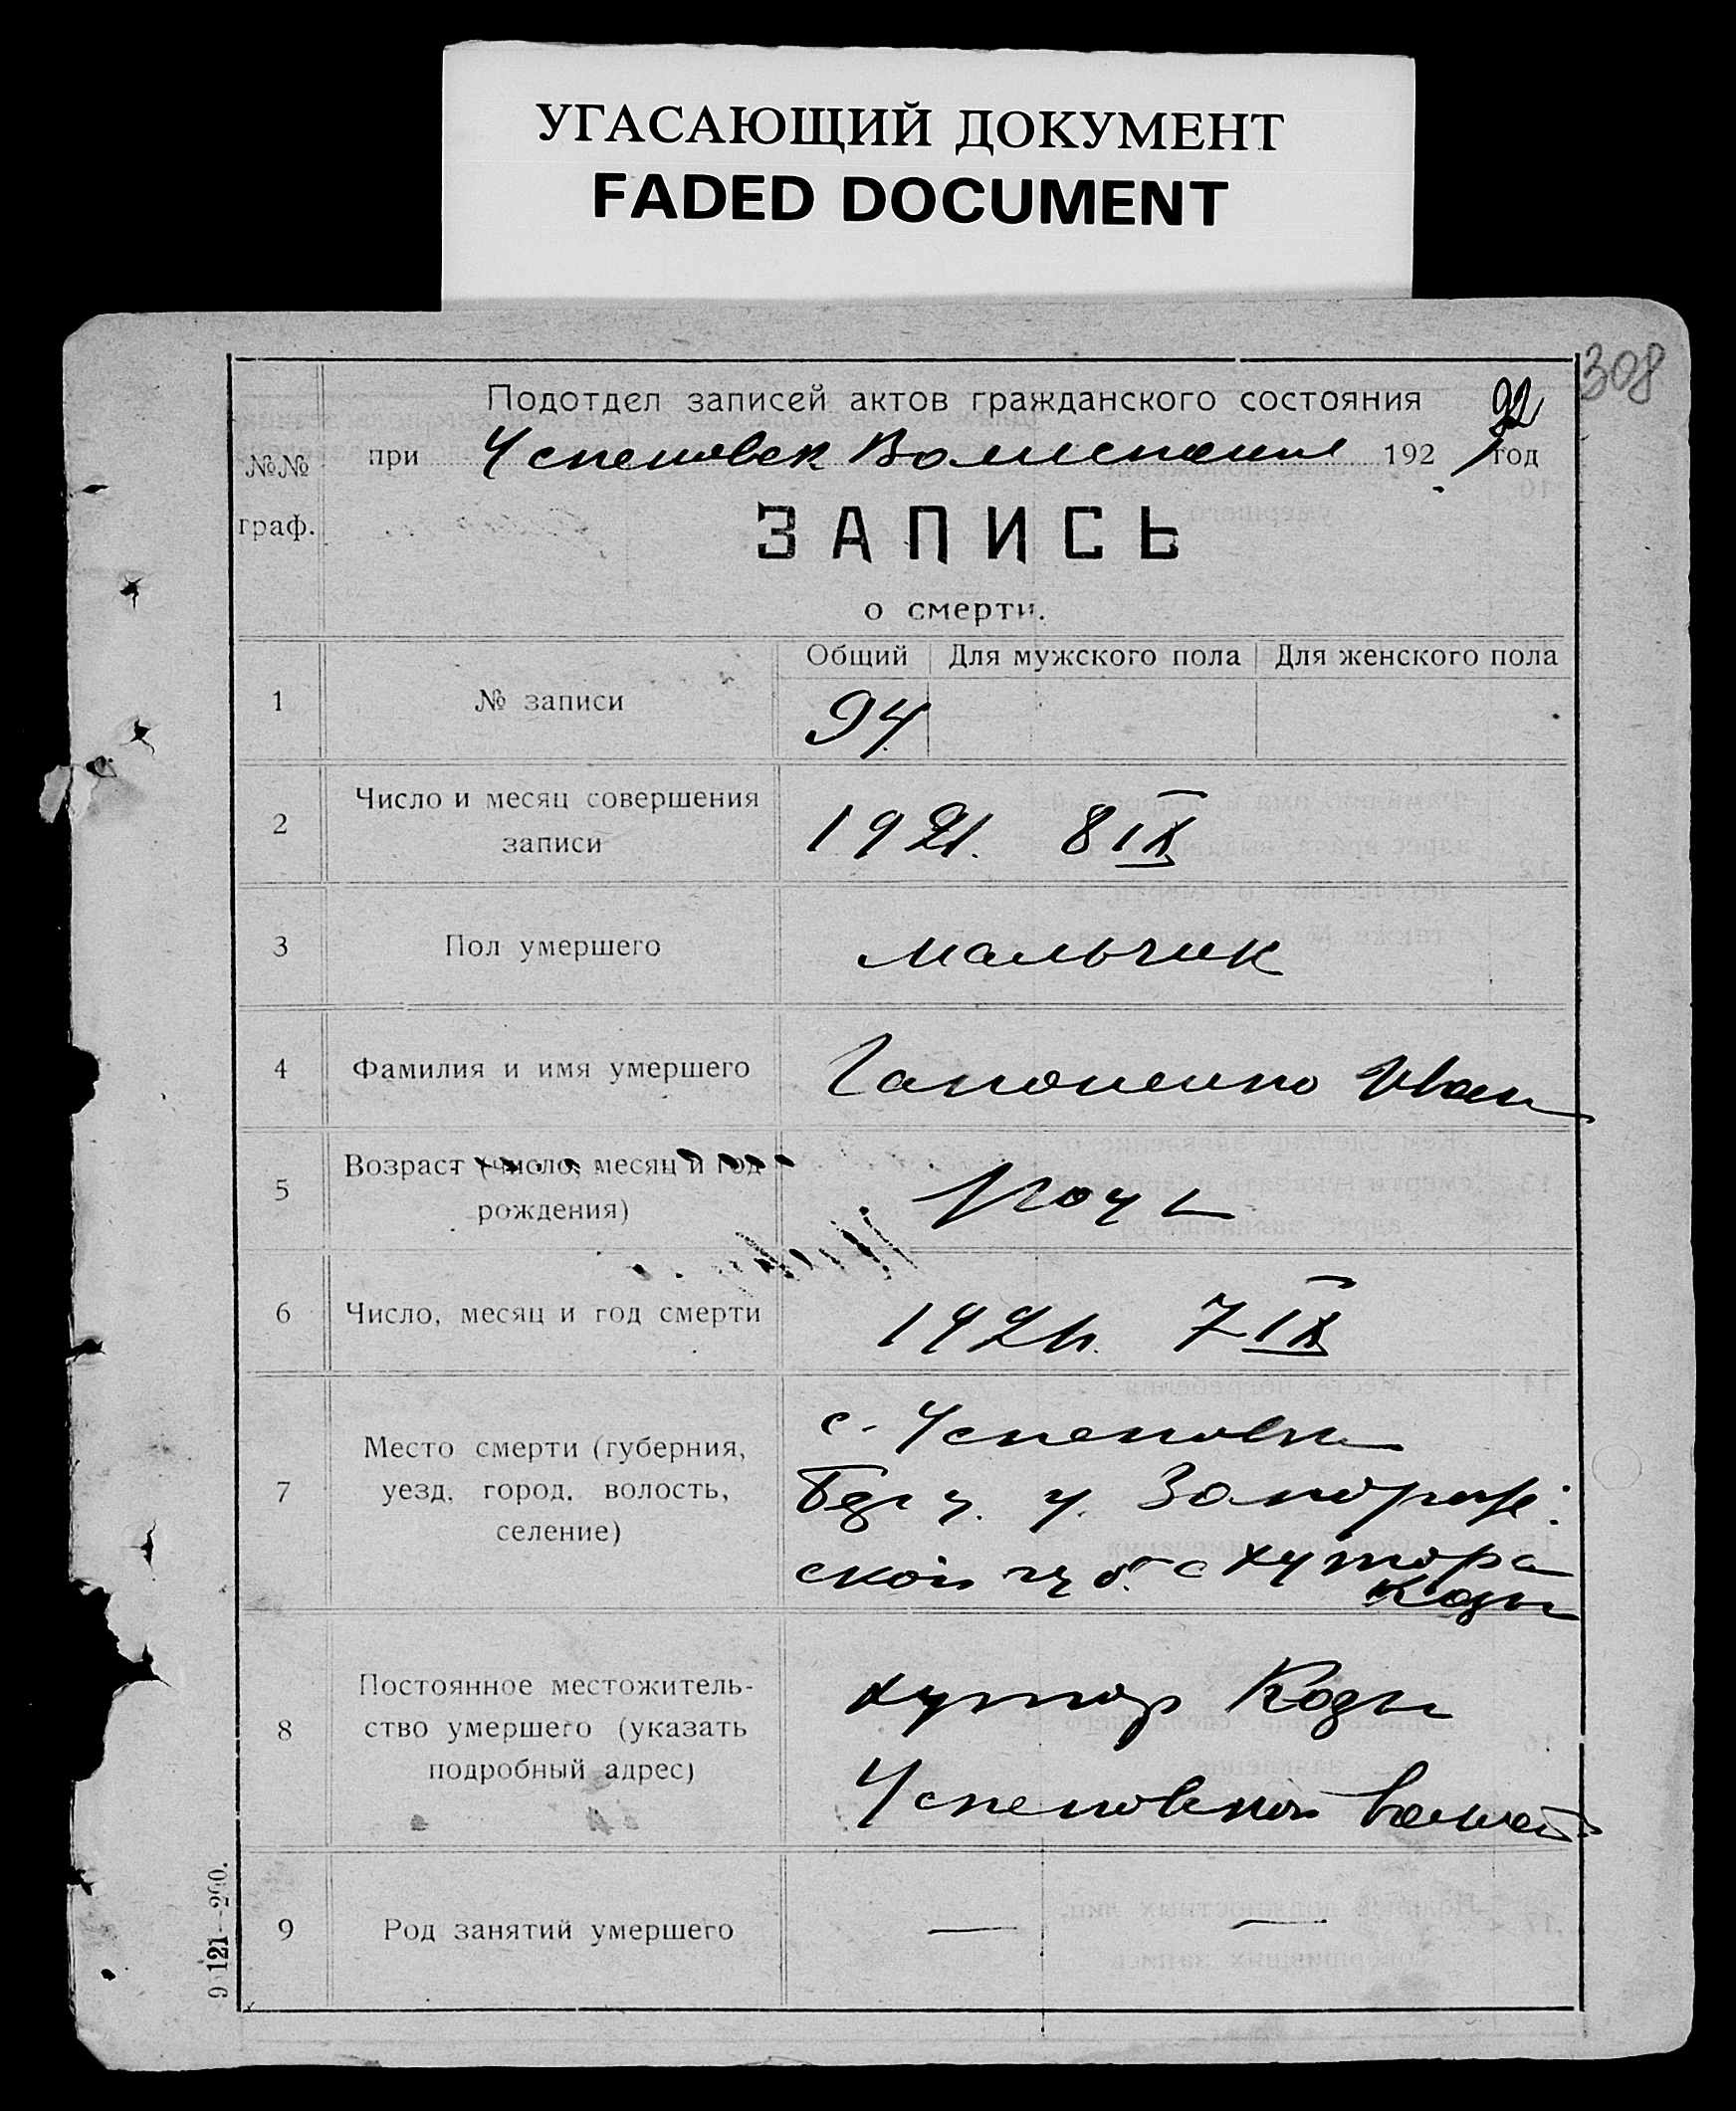 УГАСАЮЩИЙ ДОКУМЕНТ
FADED DOCUMENT
308
Подотдел записей актов гражданского состояния
№№ граф.
при Успеновск 192 1 год
ЗАПИСЬ
о смерти.
Общий Для мужского пола Для женского пола
1 № записи 94
2 Число и месяц совершения записи 1921. 8 IX
3 Пол умершего мальчик
4 Фамилия и имя умершего Гапоненко Иван
5 Возраст (число, месяц и год рождения)
6 Число, месяц и год смерти 1921. 7 IX
7 Место смерти (губерния, уезд, город, волость, селение)
с. Успеновка
у. Запорож:
ской губ. с хутора
Козы
8 Постоянное местожительство умершего (указать подробный адрес)
хутор Козы
Успеновской волост
9 Род занятий умершего — —
9121—200.